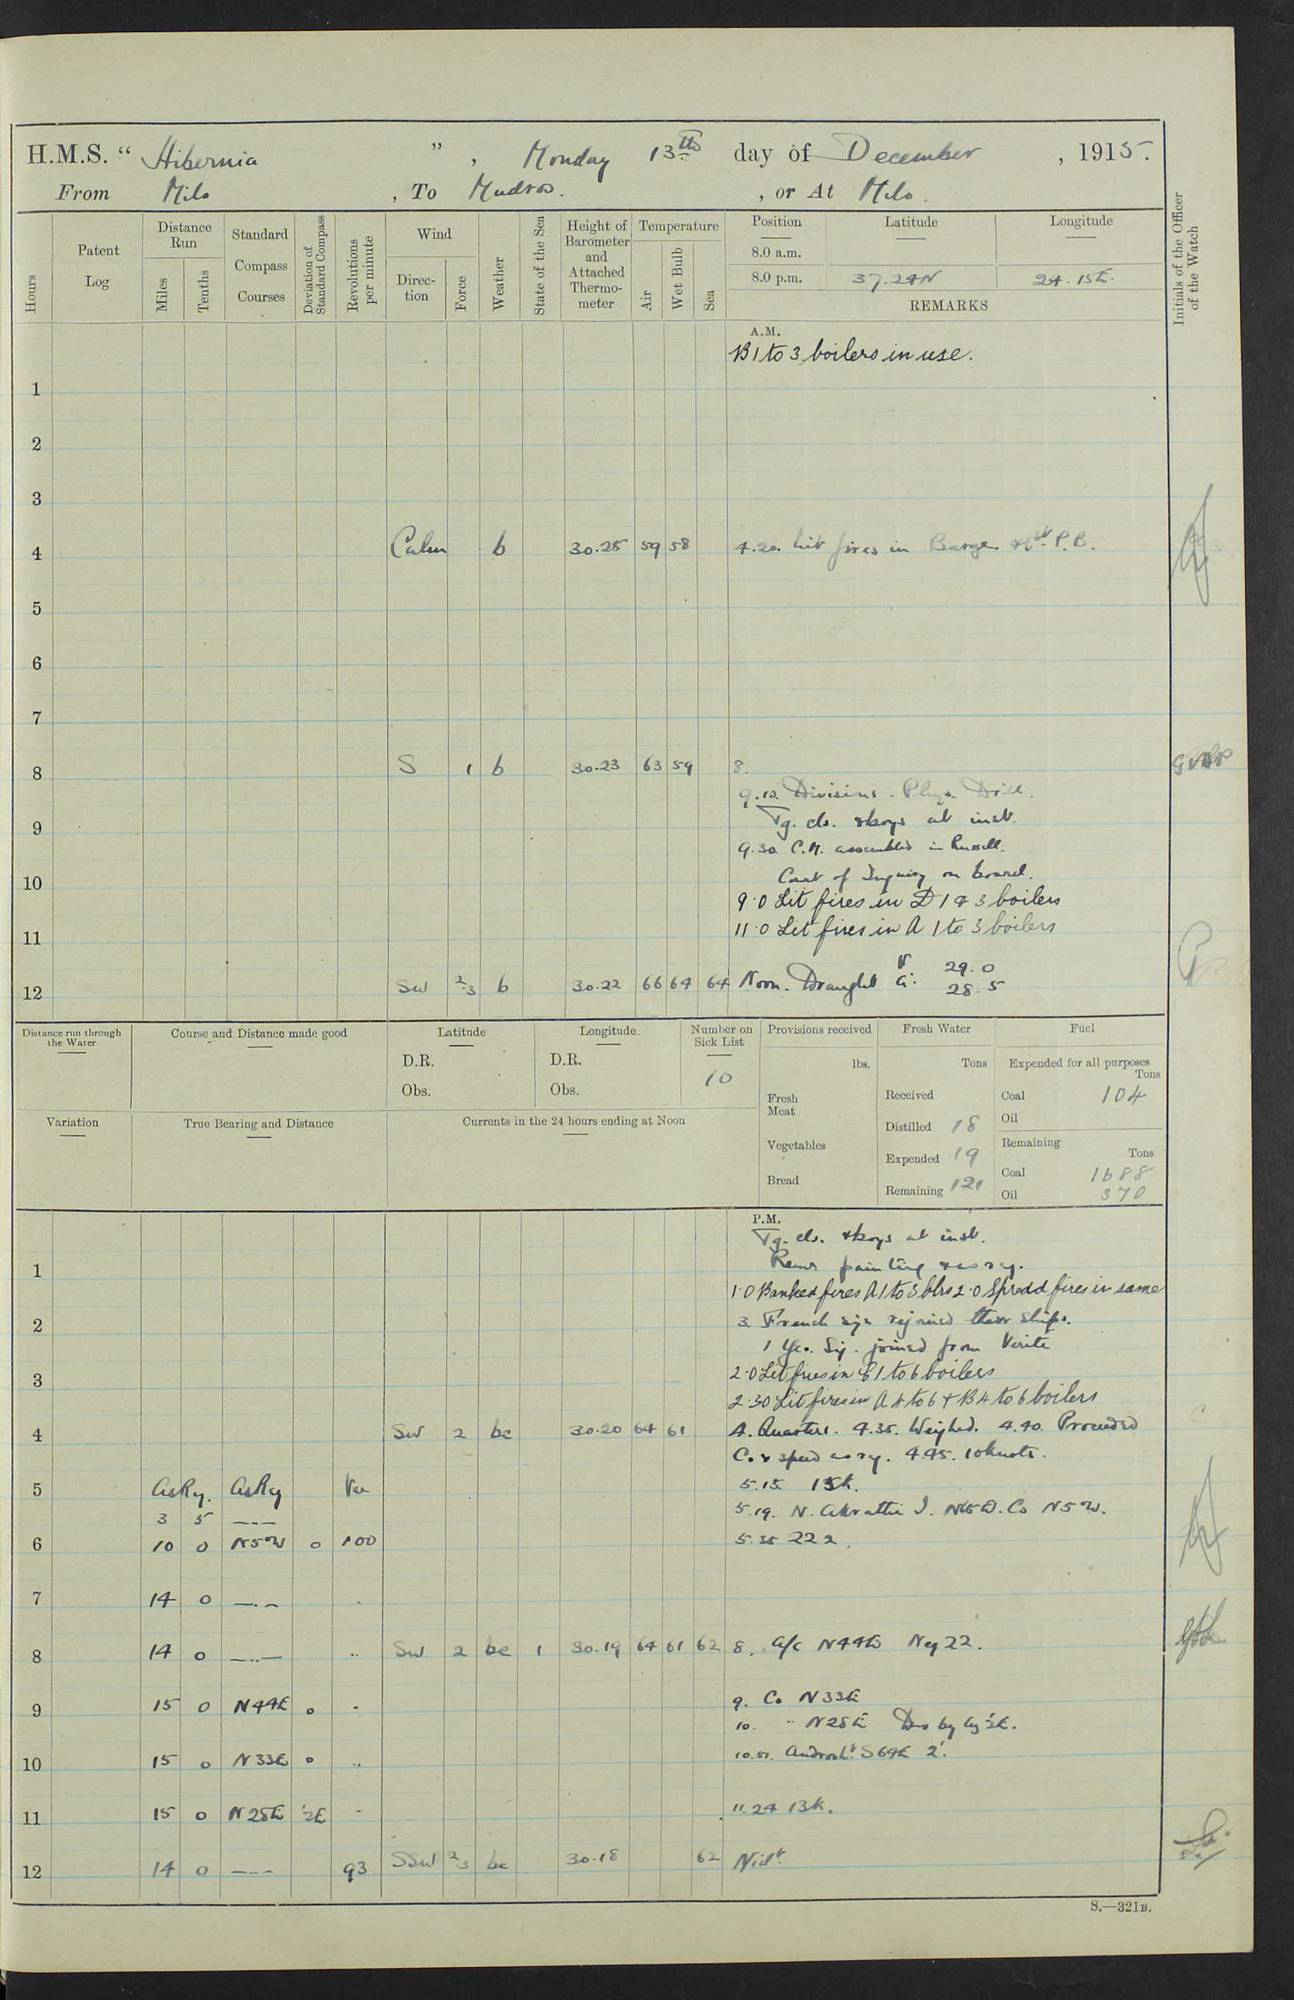 H.M.S. “ Hibernia ” , Monday 13th day of December , 1915.
From Milo , To Mudros. , or At Milo.
Hours
Patent Log
Distance Run
Miles
Tenths
Standard Compass Courses
Deviation of Standard Compass
Revolutions per minute
Wind
Direction
Force
Weather
State of the Sea
Height of Barometer and Attached Thermometer
Temperature
Air
Wet Bulb
Sea
Position Latitude Longitude
8.0 a.m.
8.0 p.m. 37.24N 24.15E.
REMARKS
Initials of the Officer of the Watch
A.M.
B 1 to 3 boilers in use.
1
2
3
4 Calm b 30.25 59 58 4.20. lit fires in Barge P.B.
5
6
7
8 S 1 b 30.23 63 59 8.
9.10. Divisions. Phys. Drill.
Tg. cls. & boys at inst.
9
9.30. C.M. assembled in Russell.
10 Court of Inquiry on board.
9.0 Lit fires in D 1 & 3 boilers
11 11.0 Lit fires in A 1 to 3 boilers
12 SW 2-3 b 30.22 66 64 64 Noon. Draught F 29.0
A 28.5
Distance run through the Water
Course and Distance made good
Latitude
D.R.
Obs.
Longitude.
D.R.
Obs.
Number on Sick List
10
Provisions received
lbs.
Fresh Meat
Vegetables
Bread
Fresh Water
Tons
Received
Distilled 18
Expended 19
Remaining 121
Fuel
Expended for all purposes
Tons
Coal 104
Oil
Remaining
Tons
Coal 1688
Oil 370
Variation
True Bearing and Distance
Currents in the 24 hours ending at Noon
P.M.
Tg. cls. & boys at inst.
1 painting & as ry.
1.0 Banked fires A 1 to 3 blrs 2.0 Spread fires in same
2 3. French sig. rejoined their ships.
1 Yeo. Sig. joined from Verité
3 2.0 Lit fires in C 1 to 6 boilers
2.30 Lit fires in A 4 to 6 & B 4 to 6 boilers
4 SW 2 bc 30.20 64 61 4. Quarters. 4.35. Weighed. 4.40. Proceeded
Co. & speed as ry. 4.45. 10 knots.
5 As Ry. As Ry Var 5.15. 15k.
3 5 —..— 5.19. N. Akrathi I. Co N5W.
6 10 0 N5W 0 100 5.35 222.
7 14 0 —..— "
8 14 0 —..— " SW 2 bc 1 30.19 64 61 62 8. A/c N44E Neg 22.
9 15 0 N44E 0 " 9. Co N33E
10. " N28E Dev by
10 15 0 N33E 0 " 10.51. Andros Lt S69E 2'.
11 15 0 N28E ½E " 11.24 13k.
12 14 0 —..— 93 SSW 2-3 bc 30.18 62 Nidt.
S.—321B.